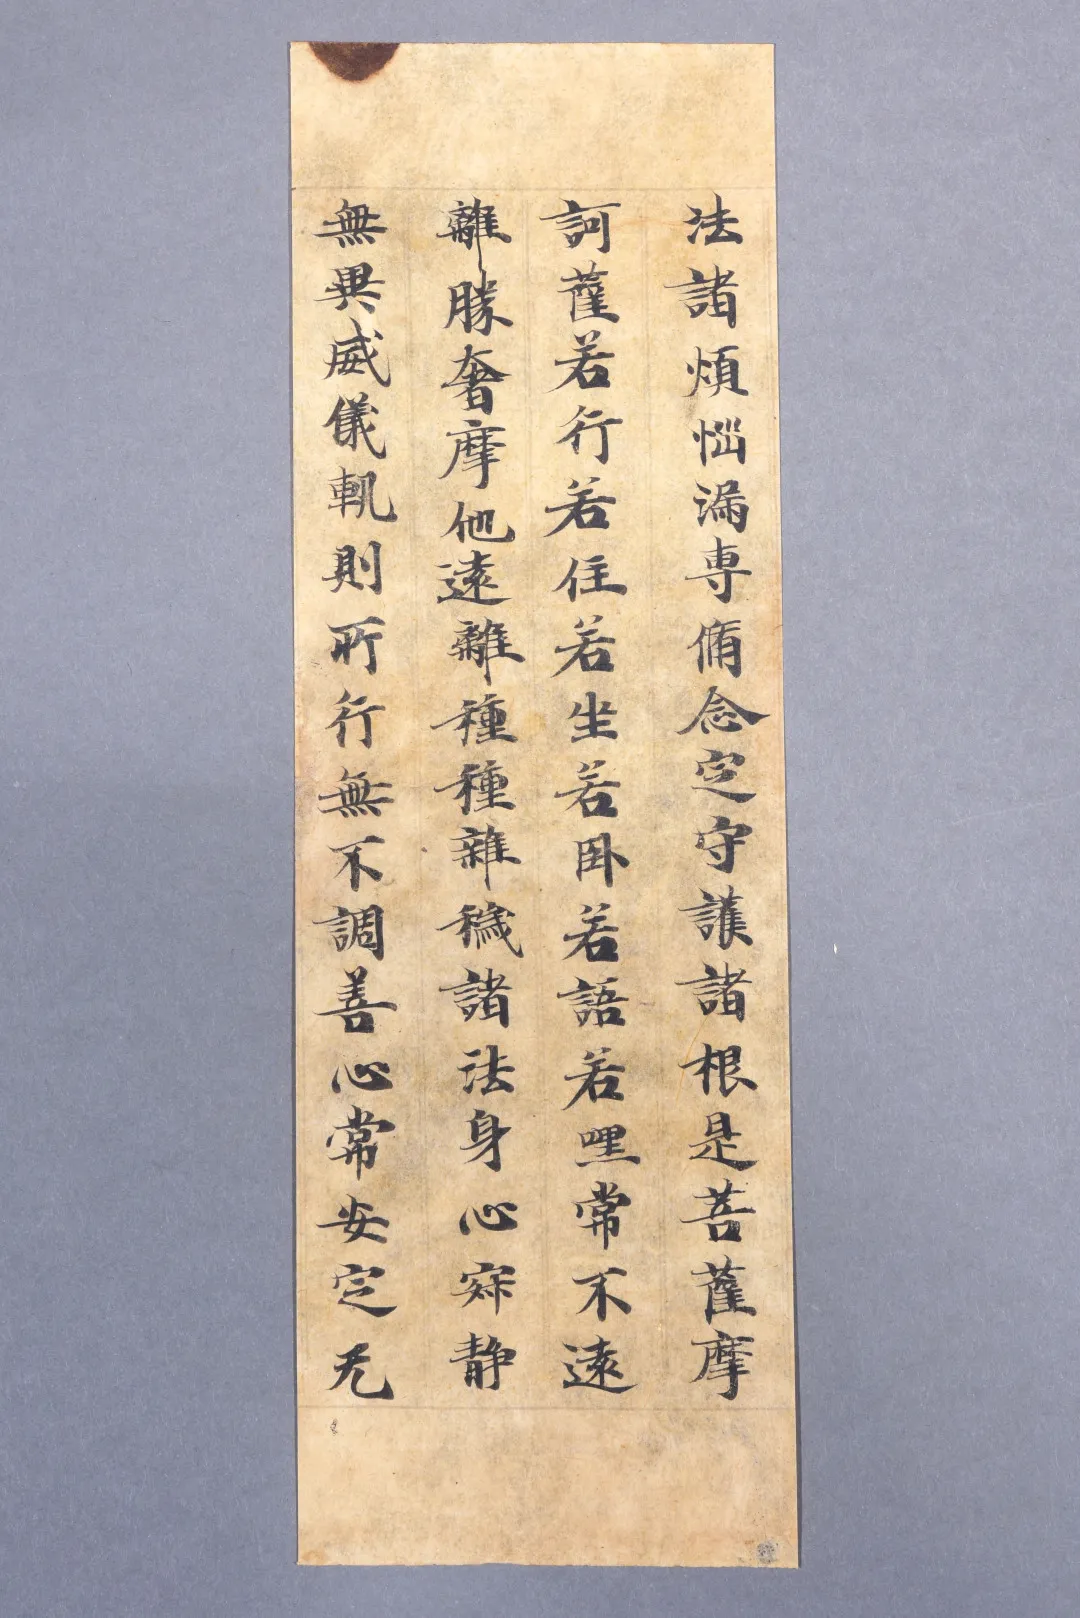 法諸煩惱漏專脩念定守護諸根是菩薩摩
訶薩若行若住若坐若卧若語若嘿常不遠
離勝奢摩他遠離種種雜穢諸法身心寂静
無異威儀軌則所行無不調善心常安定无